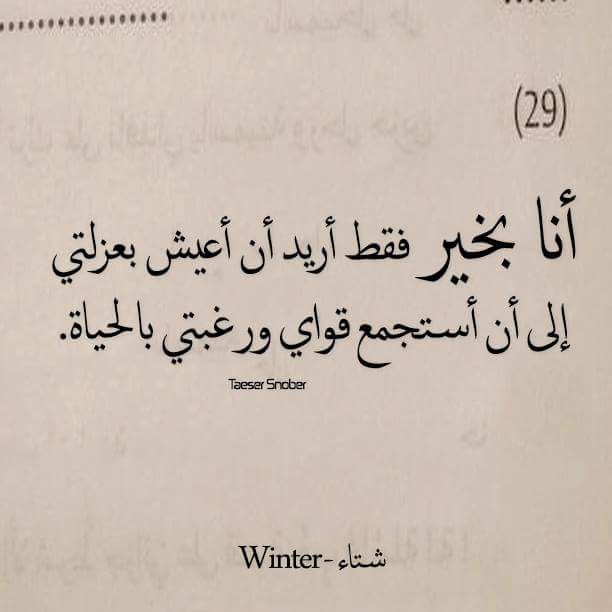 (29)
أنا بخير فقط أريد أن أعيش بعزلتي
إلى أن أستجمع قواي ورغبتي بالحياة.
Taeser Snober
شتاء - Winter